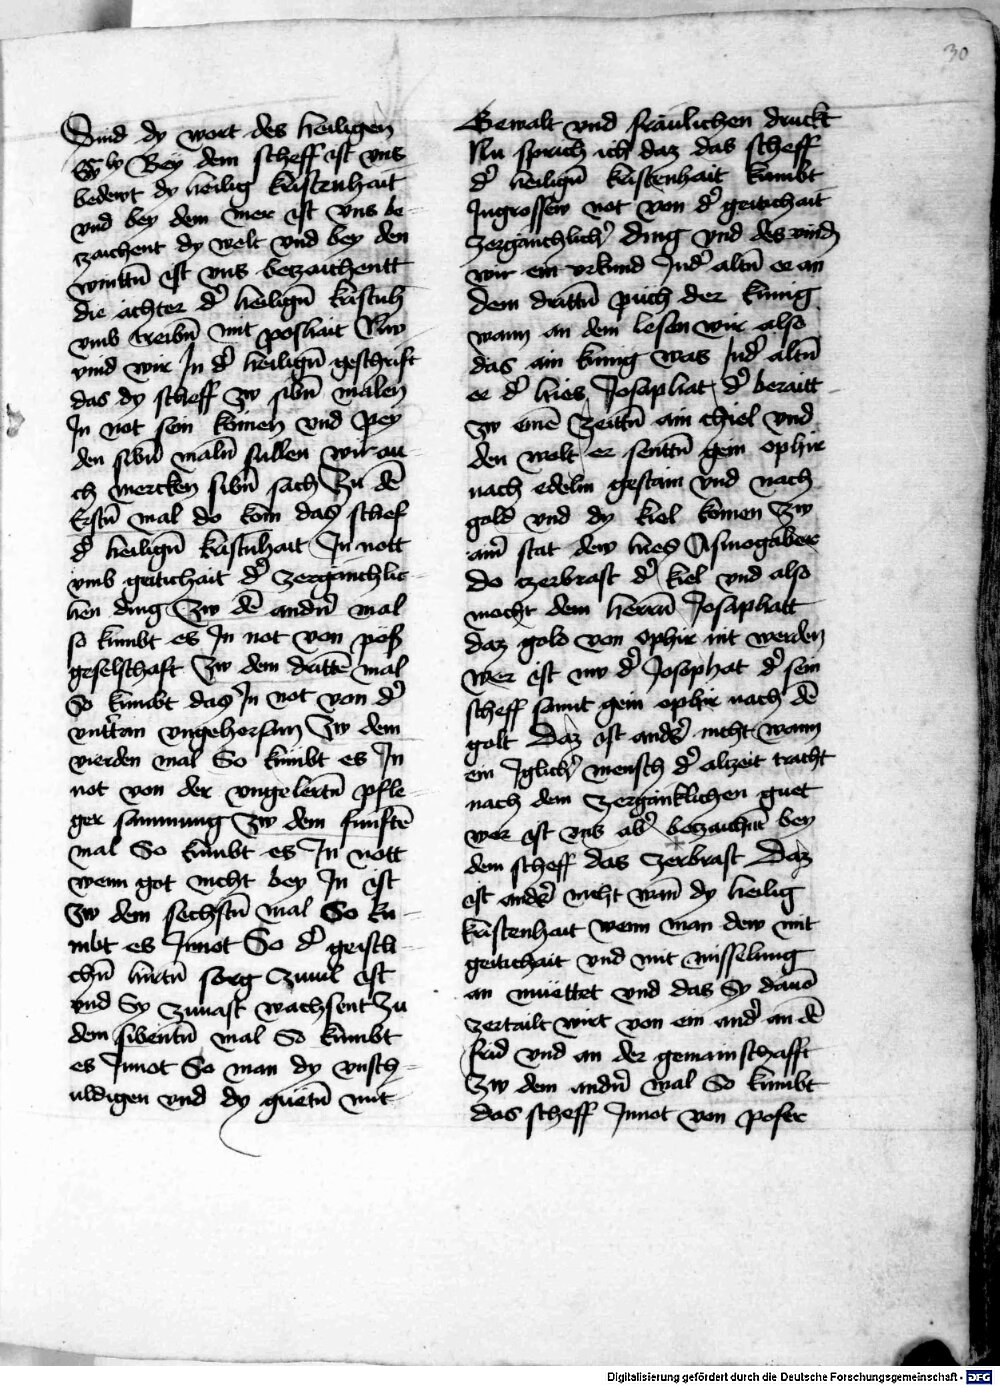 30
Sind dy wort des heiligen
Bey dem scheff ist vns
bedewt dy heilig kristenhait
vnd bey dem mer ist vns be-
zaichent dy welt vnd bey den
winttn̄ ist vns betzaichentt
die ächter d' heilign̄ kristnh
vmb treibn̄ mit poshait Nw
vind wir In d' heilign̄ geschrift
das dy scheff zw sibn̄ malen
In not sein kömen vnd pey
den sibn̄ maln̄ sullen wir au-
ch mercken sibn̄ sach Zu dē
Erstn̄ mal do kom das schef
d' heilign̄ kristnhait In nott
vmb geitichait d' zergänchlic-
hen ding Zw dē andn̄ mal
so kumbt es In not von pöß
geselschaft Zw dem drittē mal
So kumbt das In not von d'
vnttran vngehorsam Zw dem
vierden mal So kumbt es In
not von der vngelertn̄ pfle-
ger sammung Zw dem funftē
mal So kumbt es In nott
wenn got nicht bey In ist
Zw dem sechstn̄ mal So ku-
mbt es Innot So d' geistli-
chn̄ hirtn̄ sorg zuuil ist
vnd Sy zuuast wachsent Zu
dem sibentn̄ mal So kumbt
es Innot So man dy vnsch-
uldigen vnd dy guetn̄ mit
Gewalt vnd fräulichen druckt
Nu sprich ich daz das scheff
d' heilign̄ kristenhait kumbt
Ingrossew not von d' geitichait
zergänchlich' ding vnd des vind
wir ein vrkund Ind' altn̄ e an
dem drittn̄ püch der künig
wann an dem lesen wir also
das ain kunig was Ind' altn̄
ee d' hies Josaphat d' beraitt
zw einē zeittn̄ ain chiel vnd
den wolt er senttn̄ gein ophir
nach edelm gestain vnd nach
gold vnd dy kiel komen zw
ain' stat dew hies Asiongaber
do zerbrast d' kiel vnd also
mocht dem herrn̄ Josaphatt
daz gold von ophir nit werden
wer ist nw d' Josaphat d' sein
scheff samt gein ophir nach dē
golt Daz ist and's nicht wann
ein Iglich' mensch d' alzeit tracht
nach dem zergänklichen guet
wer ist vns ab' betzaichnt bey
dem scheff das zerbrast Daz
ist and's nicht wan̄ dy heilig
kristenhait wenn man dew mit
geitichait vnd mit misselung
an müettet vnd das Sy dauō
zertailt wirt von ein and' an dē
frid vnd an der gemainschafft
Zw dem andn̄ mal So kumbt
das scheff Innot von poser
Digitalisierung gefördert durch die Deutsche Forschungsgemeinschaft - DFG